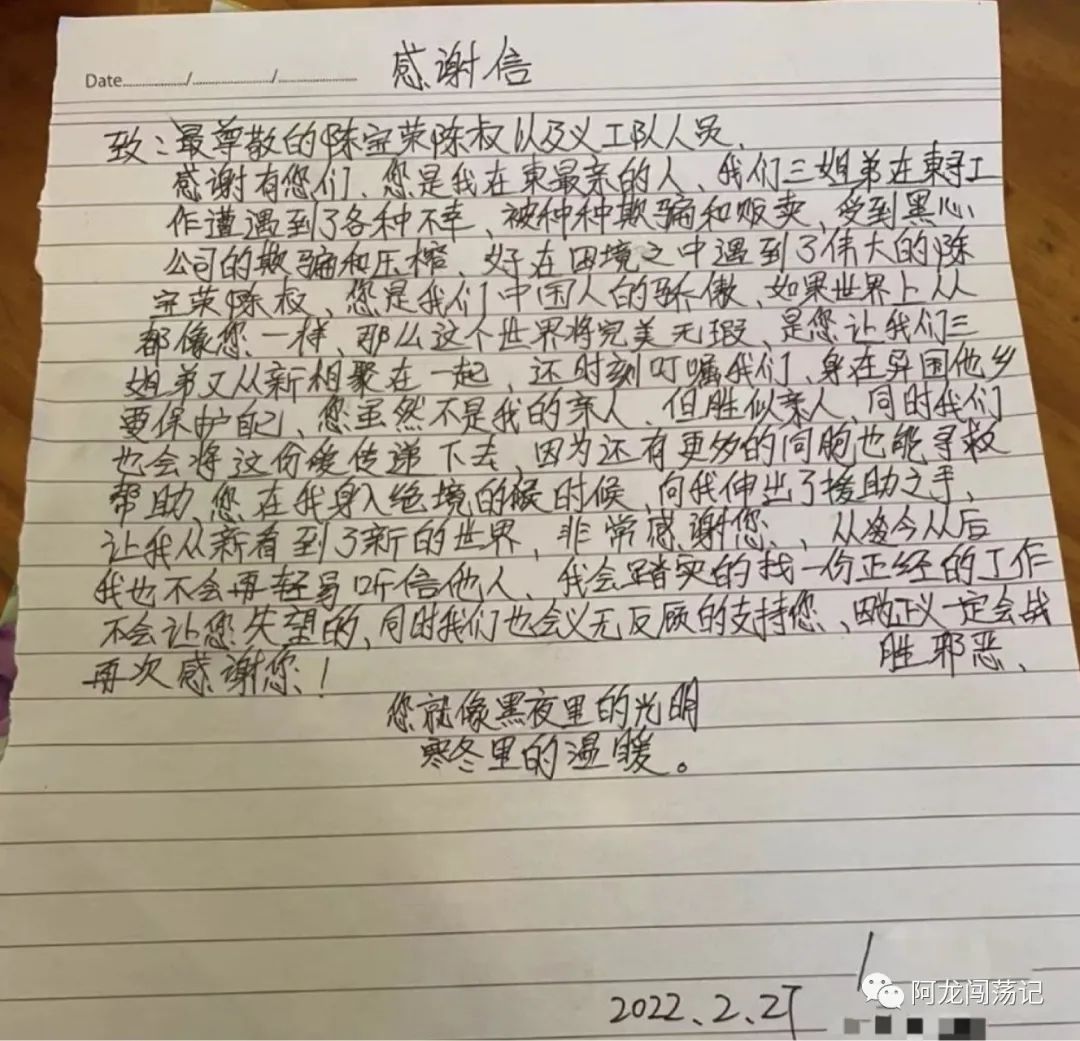 Date........../........../..........
感谢信
致：最尊敬的陈宝荣陈叔以及义工队人员、
感谢有您们、您是我在柬最亲的人、我们三姐弟在柬寻工
作遭遇到了各种不幸、被种种欺骗和贩卖、受到黑心
公司的欺骗和压榨、好在困境之中遇到了伟大的陈
宝荣陈叔、您是我们中国人的骄傲、如果世界上人
都像您一样、那么这个世界将完美无瑕、是您让我们三
姐弟又从新相聚在一起、还时刻叮嘱我们、身在异国他乡
要保护自己、您虽然不是我的亲人、但胜似亲人、同时我们
也会将这份爱传递下去、因为还有更多的同胞也能寻救
帮助、您在我身入绝境的候时候、向我伸出了援助之手、
让我从新看到了新的世界、非常感谢您、、从今从后
我也不会再轻易听信他人、我会踏实的找一份正经的工作
不会让您失望的、同时我们也会义无反顾的支持您、因为正义一定会战
胜邪恶、
再次感谢您！
您就像黑夜里的光明
寒冬里的温暖。
2022.2.27
阿龙闯荡记